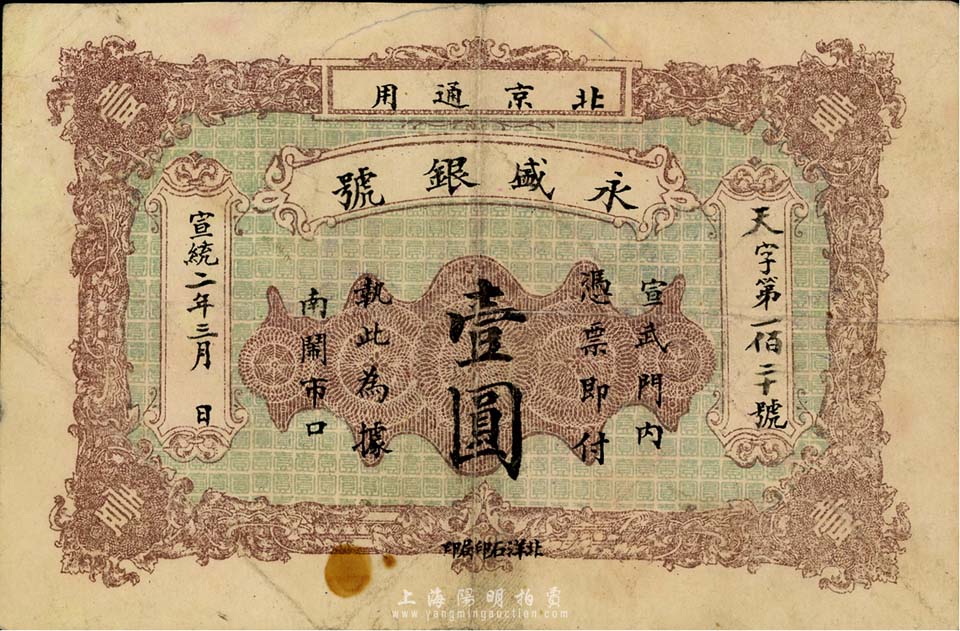 北京通用
永盛銀號
天字第一佰二十號
宣武門內
憑票即付
壹圓
執此為據
南鬧市口
宣統二年三月 日
北洋石印局印
上海陽明拍賣
www.yangmingauction.com